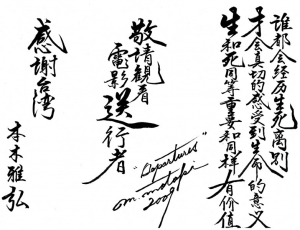 谁都会经历生死离别
才会真切的感受到生命的意义
生和死同等重要和同样有价值
敬請觀看
電影送行者
"Departures"
om. motoki
2009
感謝台湾
本木雅弘